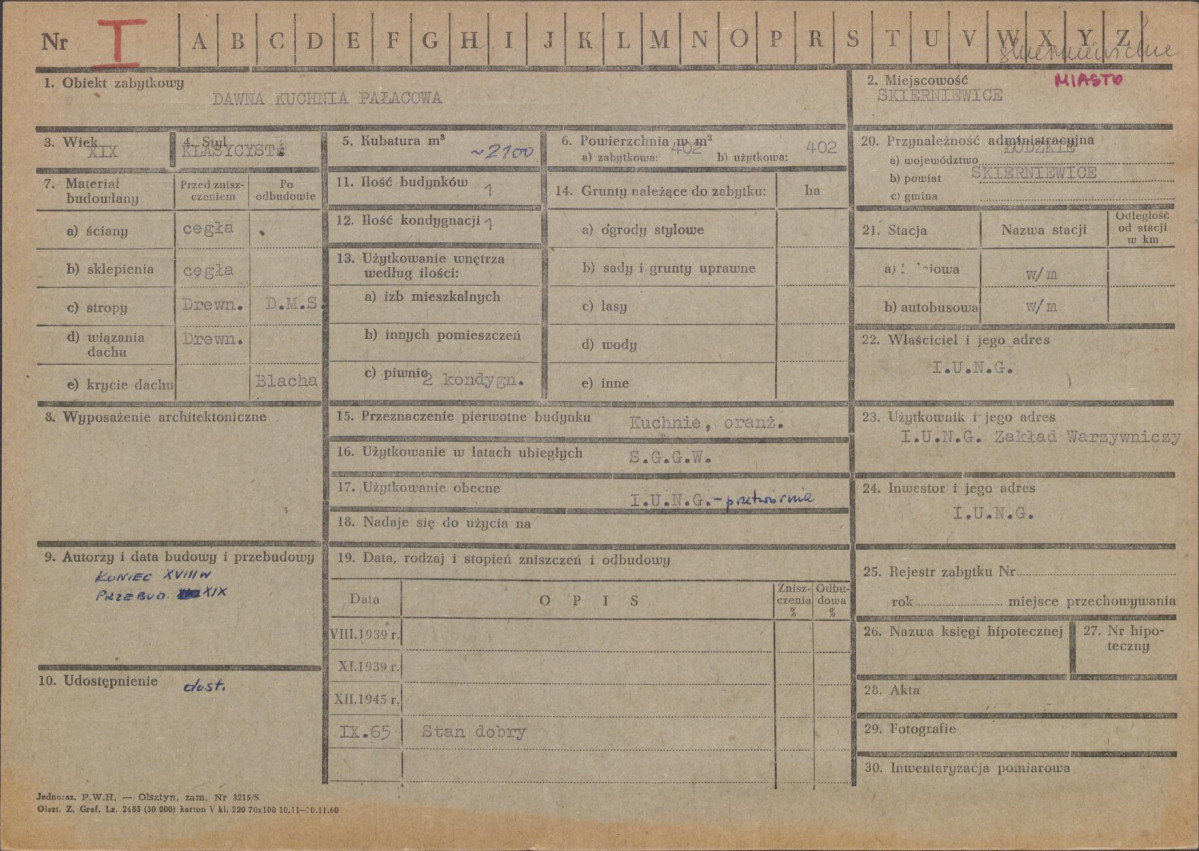 Nr I A B C D E F G H I J K L M N O P R S T U V W X Y Z
skierniewickie
1. Obiekt zabytkowy
DAWNA KUCHNIA PAŁACOWA
2. Miejscowość MIASTO
SKIERNIEWICE
3. Wiek
XIX
4. Styl
KLASYCYST.
5. Kubatura m³
~2100
6. Powierzchnia w m²
a) zabytkowa: 402 b) użytkowa: 402
20. Przynależność administracyjna
a) województwo ŁÓDZKIE
b) powiat SKIERNIEWICE
c) gmina
7. Materiał budowlany
Przed zniszczeniem
Po odbudowie
a) ściany cegła
b) sklepienia cegła
c) stropy Drewn. D.M.S.
d) wiązania dachu Drewn.
e) krycie dachu Blacha
11. Ilość budynków 1
12. Ilość kondygnacji 1
13. Użytkowanie wnętrza
według ilości:
a) izb mieszkalnych
b) innych pomieszczeń
c) piwnic 2 kondygn.
14. Grunty należące do zabytku: ha
a) ogrody stylowe
b) sady i grunty uprawne
c) lasy
d) wody
e) inne
21. Stacja Nazwa stacji Odległość od stacji w km
a) w/m
b) autobusowa w/m
22. Właściciel i jego adres
I.U.N.G.
8. Wyposażenie architektoniczne
15. Przeznaczenie pierwotne budynku Kuchnie, oranż.
16. Użytkowanie w latach ubiegłych S.G.G.W.
17. Użytkowanie obecne I.U.N.G.-przetwórnia
18. Nadaje się do użycia na
23. Użytkownik i jego adres
I.U.N.G. Zakład Warzywniczy
24. Inwestor i jego adres
I.U.N.G.
9. Autorzy i data budowy i przebudowy
KONIEC XVIII W
PRZEBUD. XIX
10. Udostępnienie dost.
19. Data, rodzaj i stopień zniszczeń i odbudowy
Data OPIS Zniszczenia % Odbudowa %
VIII.1939 r.
XI.1939 r.
XII.1945 r.
IX.65 Stan dobry
25. Rejestr zabytku Nr
rok miejsce przechowywania
26. Nazwa księgi hipotecznej
27. Nr hipoteczny
28. Akta
29. Fotografie
30. Inwentaryzacja pomiarowa
Jednocz. P.W.H. — Olsztyn, zam. Nr 3215/S
Olszt. Z. Graf. Lz. 2485 (30 000) karton V kl. 220 70x100